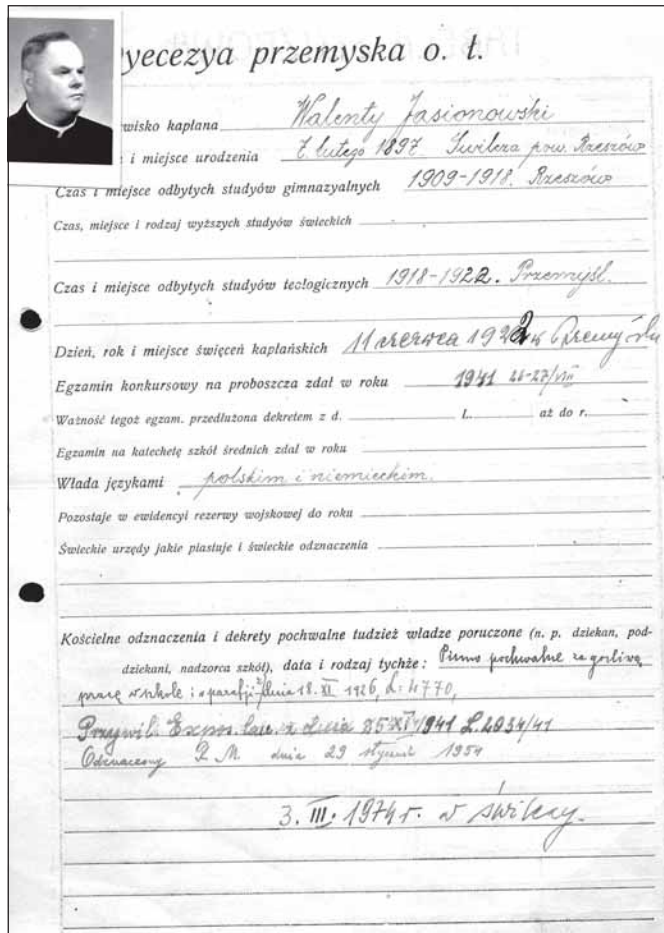 yecezya przemyska o. ł.
wisko kapłana Walenty Jasionowski
i miejsce urodzenia 7. lutego 1897. Świlcza pow. Rzeszów
Czas i miejsce odbytych studyów gimnazyalnych 1909-1918. Rzeszów
Czas, miejsce i rodzaj wyższych studyów świeckich
Czas i miejsce odbytych studyów teologicznych 1918-1922. Przemyśl.
Dzień, rok i miejsce święceń kapłańskich 11 czerwca 1922 w Przemyślu
Egzamin konkursowy na proboszcza zdał w roku 1941 26-27/VIII
Ważność tegoż egzam. przedłużona dekretem z d. L. aż do r.
Egzamin na katechetę szkół średnich zdał w roku
Włada językami polskim i niemieckim.
Pozostaje w ewidencyi rezerwy wojskowej do roku
Świeckie urzędy jakie piastuje i świeckie odznaczenia
Kościelne odznaczenia i dekrety pochwalne tudzież władze poruczone (n. p. dziekan, pod-
dziekani, nadzorca szkół), data i rodzaj tychże: Pismo pochwalne za gorliwą
pracę w szkole i w parafji z dnia 18. XI 1926, L: 4770,
Przywil. Expos. can. z dnia 25 XI 1941 L. 2934/41
Odznaczony R. M. dnia 29 styczeń 1954
3. III. 1974 r. w Świlczy.